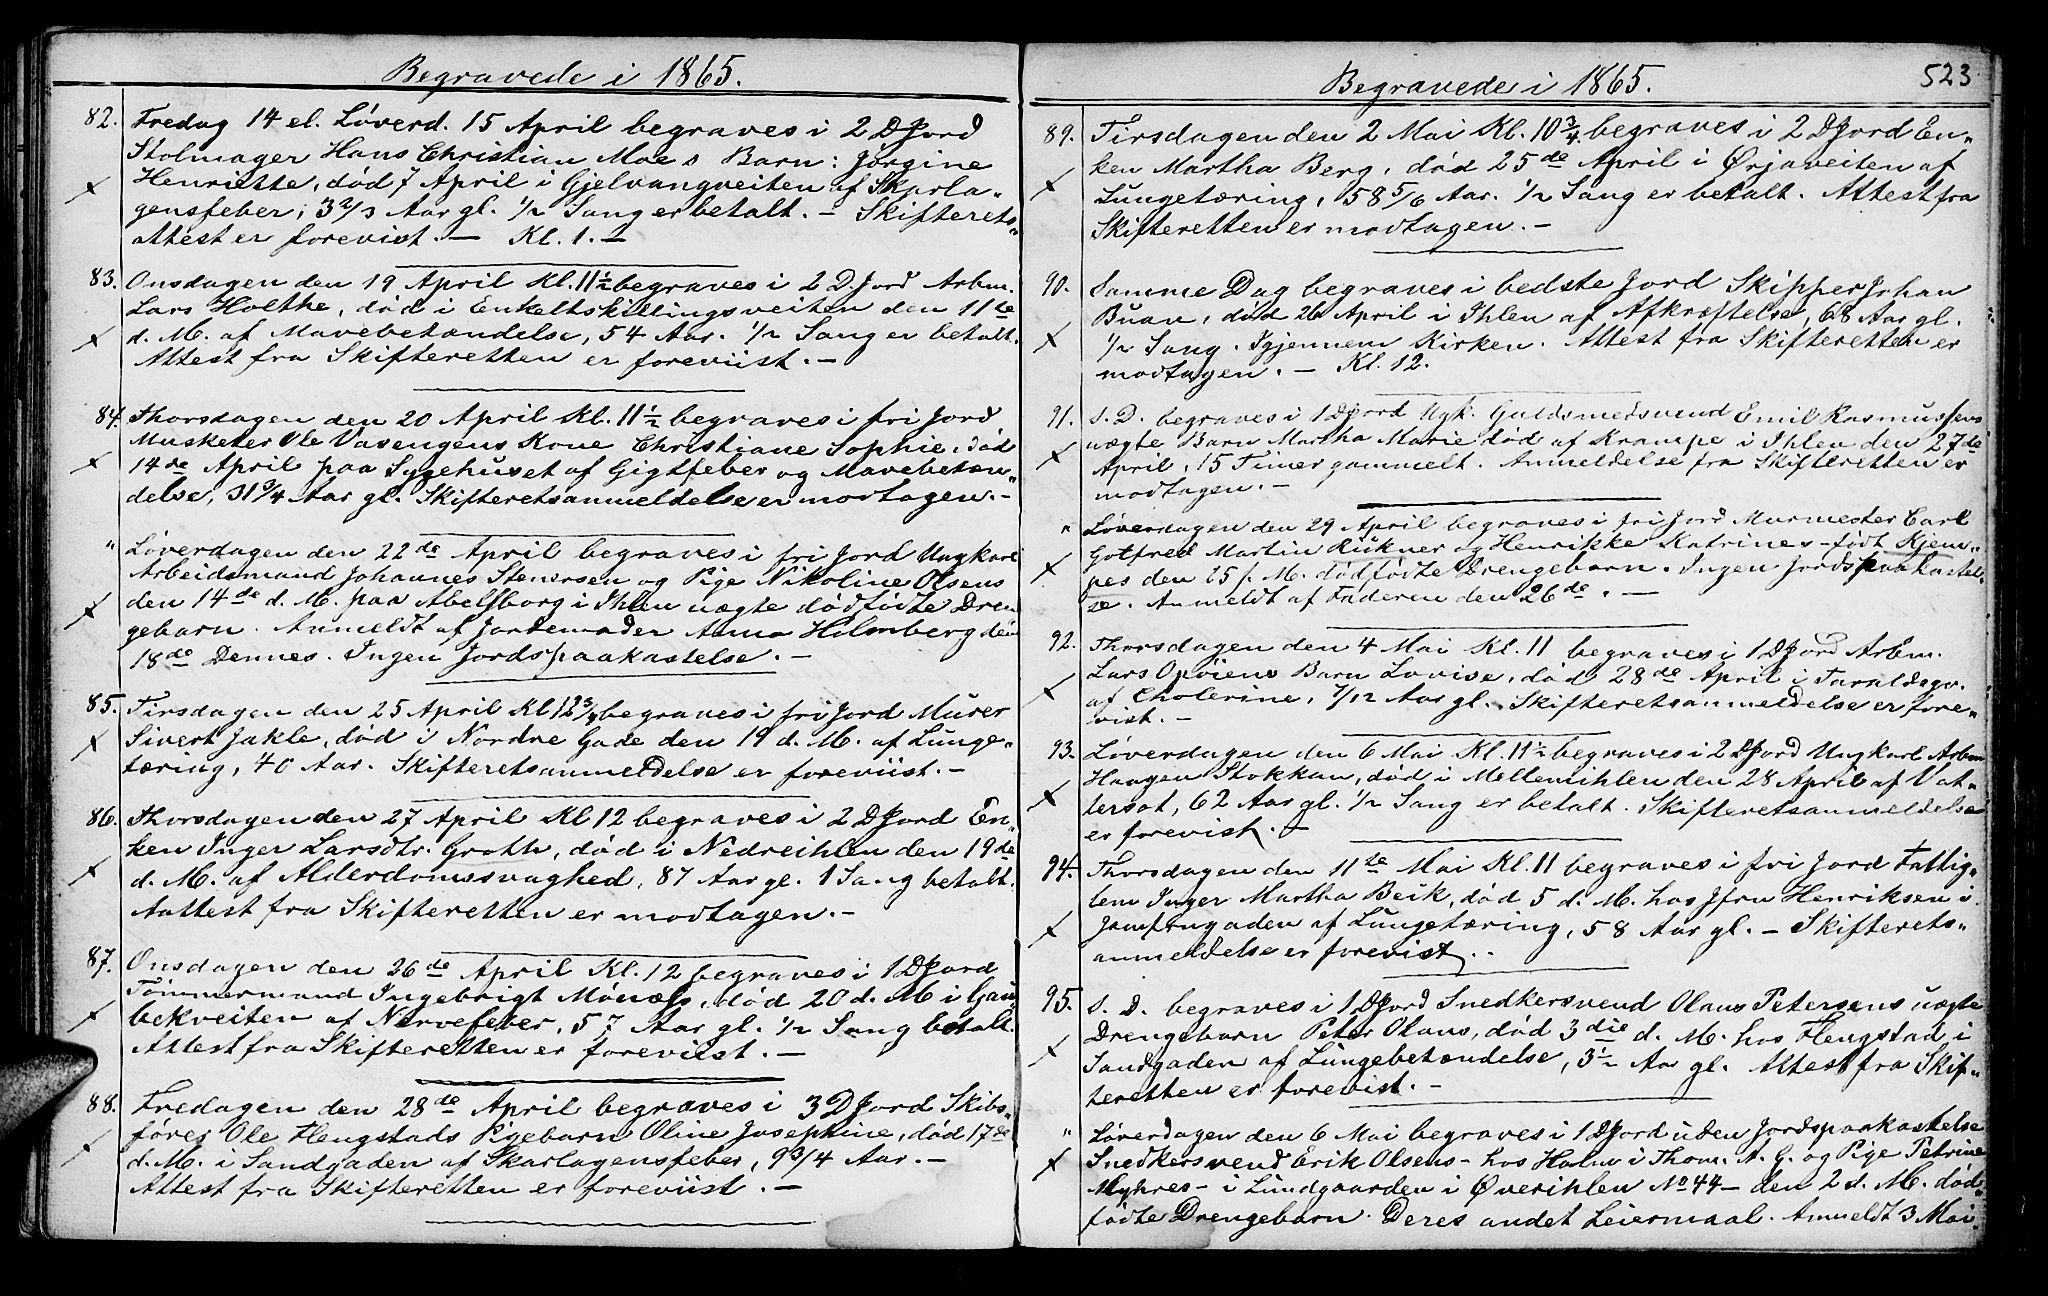 Begravede i 1865.
82. Fredag 14 el. Löverd. 15 April begraves i 2 D Jord
Stolmager Hans Christian Moes Barn: Jörgine
Henriette, död 7 April i Gjelvangveiten af Skarla-
gensfeber, 3 2/3 Aar gl. 1/2 Sang er betalt. - Skifterets-
attest er forevist. - Kl. 1. -
83. Onsdagen den 19 April Kl. 11 1/2 begraves i 2 D. Jord Arbm.
Lars Holthe, död i Enkeltskillingsveiten den 11te
d. M. af Mavebetændelse, 54 Aar. 1/2 Sang er betalt.
Attest fra Skifteretten er foreviist. -
84. Thorsdagen den 20 April Kl. 11 1/2 begraves i fri Jord
Musketer Ole Vasengens Kone Christiane Sophie, död
14de April paa Sygehuset af Gigtfeber og Mavebetæn-
delse, 31 3/4 Aar gl. Skifteretsanmeldelse er modtagen. -
" Löverdagen den 22de April begraves i fri Jord Ungkarl
Arbeidsmand Johannes Stenersen og Pige Nikoline Olsens
den 14de d. M. paa Abelsborg i Ihlen uægte dödfödte Dren
gebarn. Anmeldt af Jordemoder Anna Holmberg den
18de Dennes. Ingen Jordspaakastelse. -
85. Tirsdagen den 25 April Kl 12 3/4 begraves i fri Jord Murer
Sivert Jakle, död i Nordre Gade den 19 d. M. af Lunge-
tæring, 40 Aar. Skifteretsanmeldelse er foreviist. -
86. Thorsdagen den 27 April Kl 12 begraves i 2 D Jord En-
ken Inger Larsdtr. Groth, död i Nedreihlen den 19de
d. M. af Alderdomssvaghed, 87 Aar gl. 1 Sang betalt.
Aattest fra Skifteretten er modtagen. -
87. Onsdagen den 26de April Kl. 12 begraves i 1 D Jord
Tömmermand Ingebrigt Mönæss, död 20 d. M. i Gau
bekveiten af Nervefeber, 57 Aar gl. 1/2 Sang betalt.
Attest fra Skifteretten er foreviist. -
88. Fredagen den 28de April begraves i 3 D Jord Skibs-
förer Ole Hengstads Pigebarn Oline Josephine, död 17de
d. M. i Sandgaden af Skarlagensfeber, 9 3/4 Aar. -
Attest fra Skifteretten er foreviist. -
Begravede i 1865.
523
89. Tirsdagen den 2 Mai Kl. 10 3/4 begraves i 2 D Jord En-
ken Martha Berg, död 25de April i Ørjaveiten af
Lungetæring, 58 5/6 Aar. 1/2 Sang er betalt. Attest fra
Skifteretten er modtagen. -
90. Samme Dag begraves i bedste Jord Skipper Johan
Buan, död 26 April i Ihlen af Afkræftelse, 68 Aar gl.
1/2 Sang. Igjennem Kirken. Attest fra Skifteretten er
modtagen. - Kl. 12.
91. S. D. begraves i 1 D Jord Ugk. Guldsmedsvend Emil Rasmussens
uægte Barn Martha Marie död af Krampe i Ihlen den 27de
April, 15 Timer gammelt. Anmeldelse fra Skifteretten er
modtagen. -
" Löverdagen den 29 April begraves i fri Jord Murmester Carl
Gotfred Martin Rükner og Henrikke Katrines - födt Kjem-
pes den 25 p. M. dödfödte Drengebarn. Ingen Jordspaakastel-
se. Anmeldt af Faderen den 26de. -
92. Thorsdagen den 4 Mai Kl. 11 begraves i 1 D Jord Arbm.
Lars Opöiens Barn Lovise, död 28de April i Taraldsgv.
af Cholerine, 7/12 Aar gl. Skifteretsanmeldelse er fore-
vist. -
93. Löverdagen den 6 Mai Kl. 11 1/2 begraves i 2 D Jord Ungkarl Arbm
Haagen Stokkan, död i Mellemihlen den 28 April af Vat-
tersot, 62 Aar gl. 1/2 Sang er betalt. Skifteretsanmeldelse
er forevist. -
94. Thorsdagen den 11te Mai Kl. 11 begraves i fri Jord Fattig-
lem Inger Martha Beik, död 5 d. M. hos Jfru Henriksen i
Jomfrugaden af Lungetæring, 58 Aar gl. - Skifterets-
anmeldelse er forevist. .
95. S. D. begraves i 1 D Jord Snedkersvend Olaus Petersens uægte
Drengebarn Peter Olaus, död 3die d. M. hos Hengstad i
Sandgaden af Lungebetændelse, 3 1/2 Aar gl. Attest fra Skif-
teretten er forevist. -
" Löverdagen den 6 Mai begraves i 1 D Jord uden Jordspaakastelse
Snedkersvend Erik Olsens - hos Holm i Thom. A. G. og Pige Petrine
Myhres - i Lundgaarden i Øverihlen No 44 - den 2 d. M. död-
födte Drengebarn. Deres andet Leiermaal. Anmeldt 3 Mai.